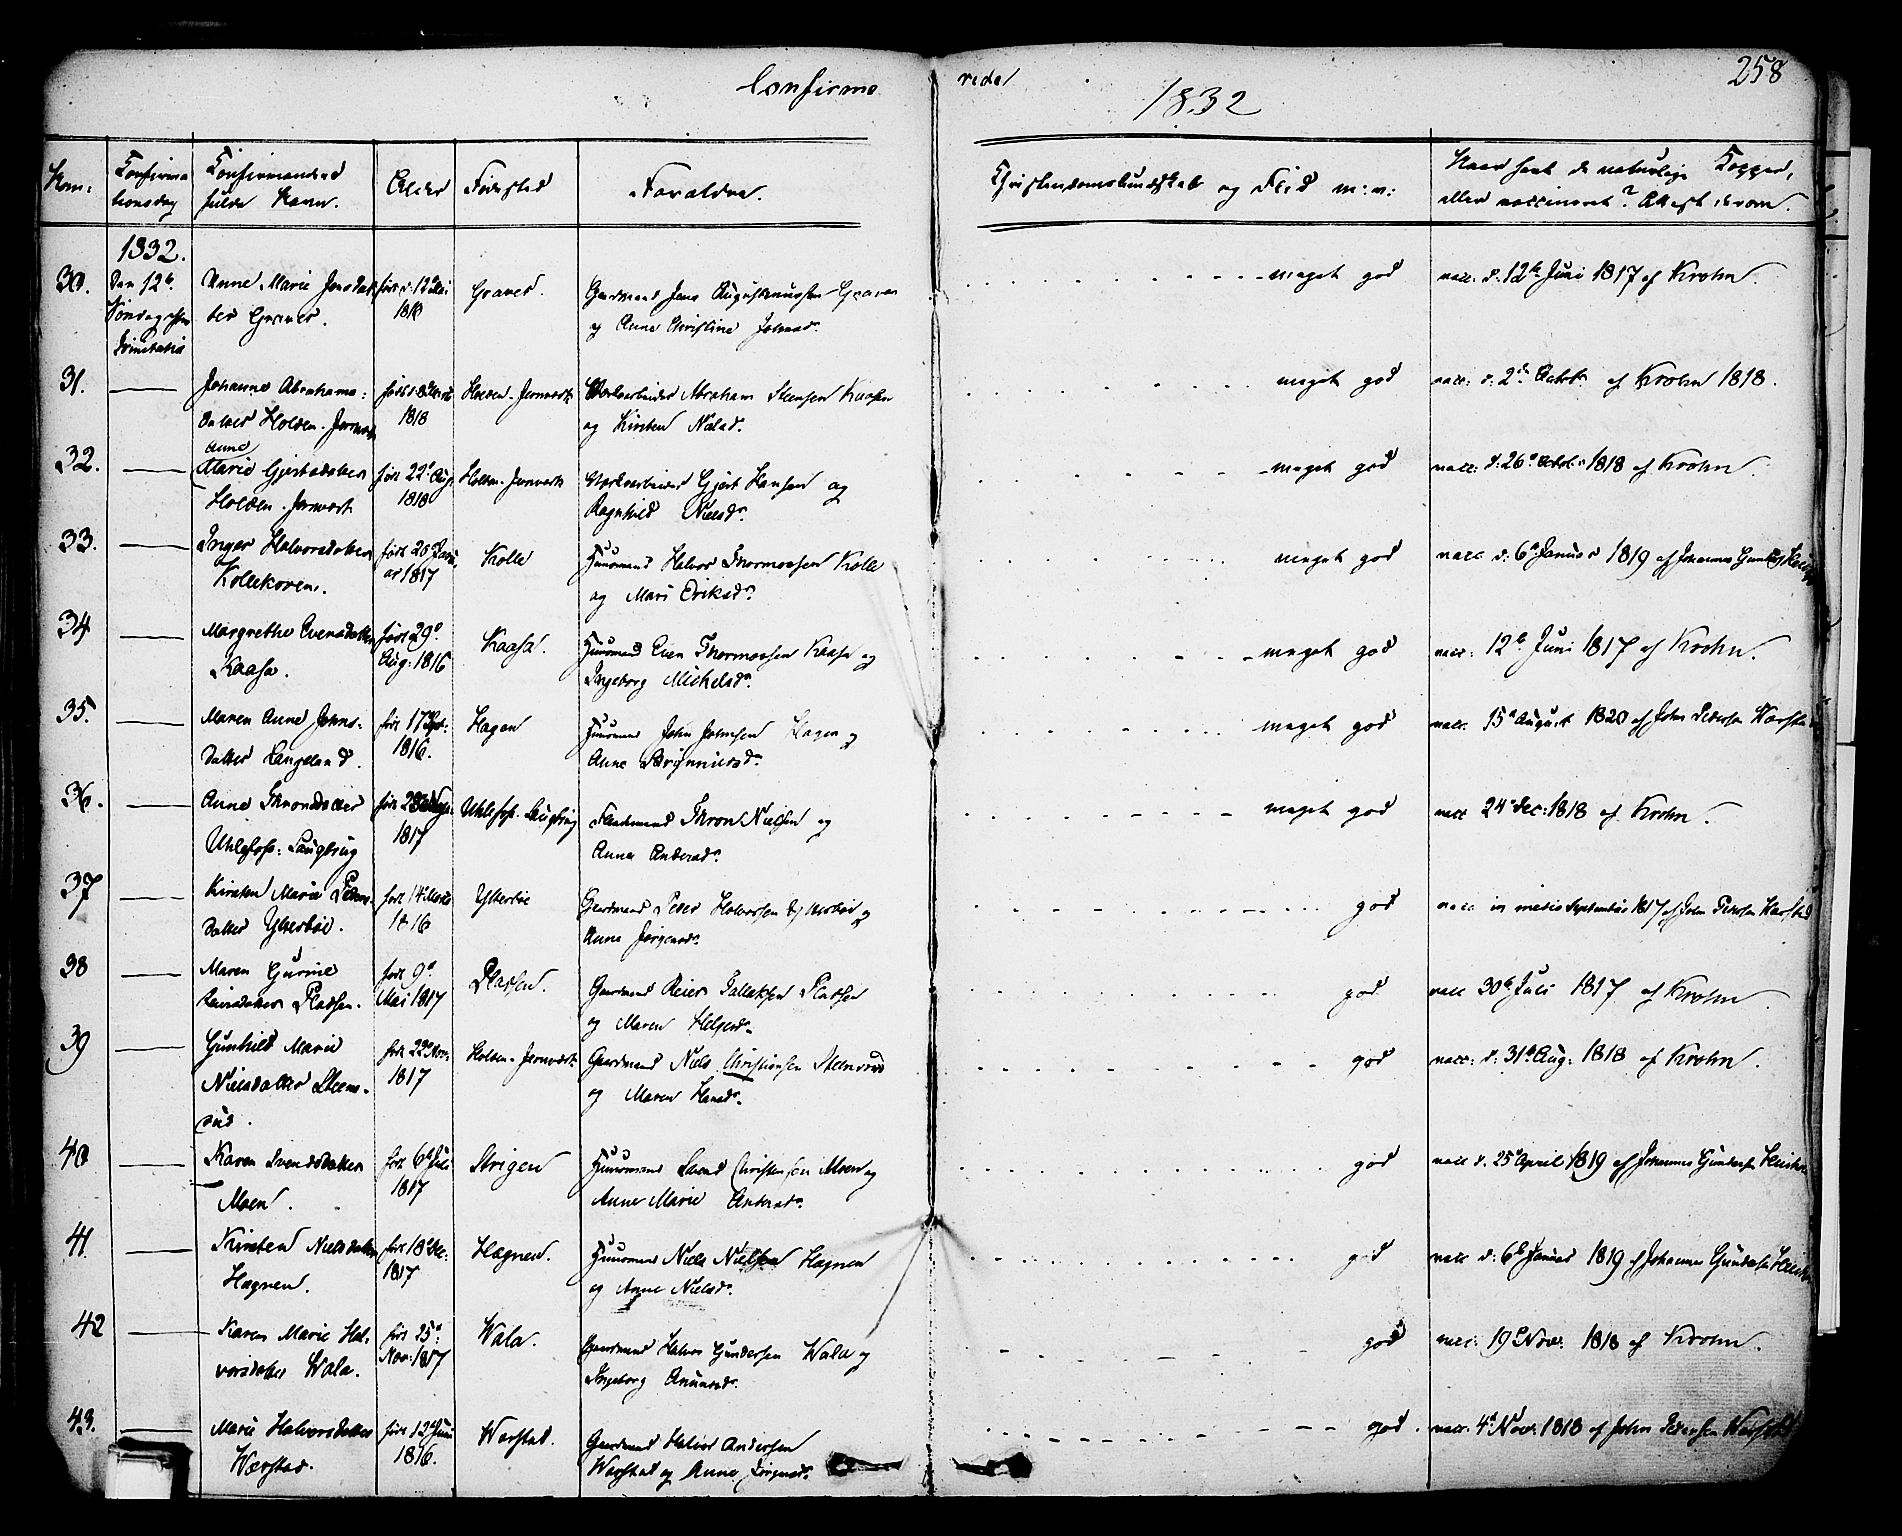 Confirme
rede
258
1832
Num:
Confirma
tionsdag
Confirmandens
fulde Navn.
Alder
Fødested
Forældre.
Christendomskundskab og Flid m: v:
Naar havt de naturlige Kopper,
eller vaccineret? Attest derom.
1832.
30.
Den 12te
Søndag efter
Trinitatis
Anne Marie Jensdat
ter Graver.
Graver.
Gaardmand Jens Augustinussen Graver
og Anne Christine Johnsd.
meget god
vacc. d. 12te Juni 1817 af Krohn.
31.
Johanne Abrahams-
datter Holden Jernverk
født 1818
Holden Jernverk
Værksarbeider Abraham Steensen Kaasen
og Kirsten Nielsd.
meget god
vacc: d. 2den Octob. af Krohn 1818.
32.
Anne
Marie Gjertsdatter
Holden Jernverk
født 22d Aug.
1818
Holden Jernverk
Værksarbeider Gjert Hansen og
Ragnhild Nielsd.
meget god
vacc: d: 26d Octobr 1818 af Krohn.
33.
Inger Halvorsdatter
Kollekoven.
født 20d Janu
ar 1817
Kolle
Huusmand Halvor Thormodsen Kolle
og Mari Eriksd.
meget god
vacc d: 6d Januar 1819 af Johannes
34
Margrethe Evensdatter
Kaasa.
født 29d
Aug: 1816
Kaasa.
Huusmand Even Thormodsen Kaasa og
Ingeborg Mickelsd.
meget god
vacc: 12te Juni 1817 af Krohn.
35.
Maren Anne Johns-
datter Langeland.
født 17d
1816.
Hagen
Huusmand John Johnsen Hagen og
Anne Brynnilsd.
meget god
vacc. 15d August 1820 af John Pedersen Wærstad
36.
Anne Thronsdatter
Uhlefoss: Saugbrug
født
1817
Uhlefoss. Saugbrug
Fladmand Thron Nielsen og
Anne Andersd.
meget god
vacc 24d Dec: 1818 af Krohn.
37
Kirsten Marie Peders-
datter Ytterbøe.
født 14d Marts
1816
Ytterbøe
Gaardmand Peder Halvorsen Ytterbøe og
Anne Jørgensd.
god
vacc in medio Septembris 1817 af John Pedersen Wærstad
38
Maren Gurine
Reiersdatter Pladsen.
født 9d
Mai 1817
Pladsen.
Gaardmand Reier Tallaksen Pladsen
og Maren Helgesd.
god
vacc 30te Juli 1817 af Krohn.
39
Gunhild Marie
Nielsdatter Steens-
rud.
født 22d Nov:
1817
Holden-Jernverk
Gaardmand Niels Christiansen Steensrud
og Maren Hansd.
god
vacc: d: 31d Aug: 1818 af Krohn.
40
Karen Svendsdatter
Moen.
født 6d Juli
1817
Strigen
Huusmand Svend Christensen Moen og
Anne Marie Andersd.
god
vacc d. 25d April 1819 af Johannes Gundersen
41.
Kirsten Nielsdatter
Hagnen.
født 18d Dec:
1817
Hagnen.
Huusmand Niels Nielsen Hagnen
og Anne Nielsd.
god
vacc d: 6te Januar 1819 af Johannes Gundersen
42
Karen Marie Hal-
vorsdatter Wala.
født 25d
Nov: 1817
Wala.
Gaardmand Halvor Gundersen Wala og
Ingeborg Amundsd.
god
vacc: 19d Nov: 1818 af Krohn.
43.
Marie Halvorsdatter
Wærstad.
født 12d Juni
1816.
Wærstad.
Gaardmand Halvor Andersen
Wærstad og Anne Jørgensd.
god.
vacc. 4d Nov. 1818 af John Pedersen Wærstad